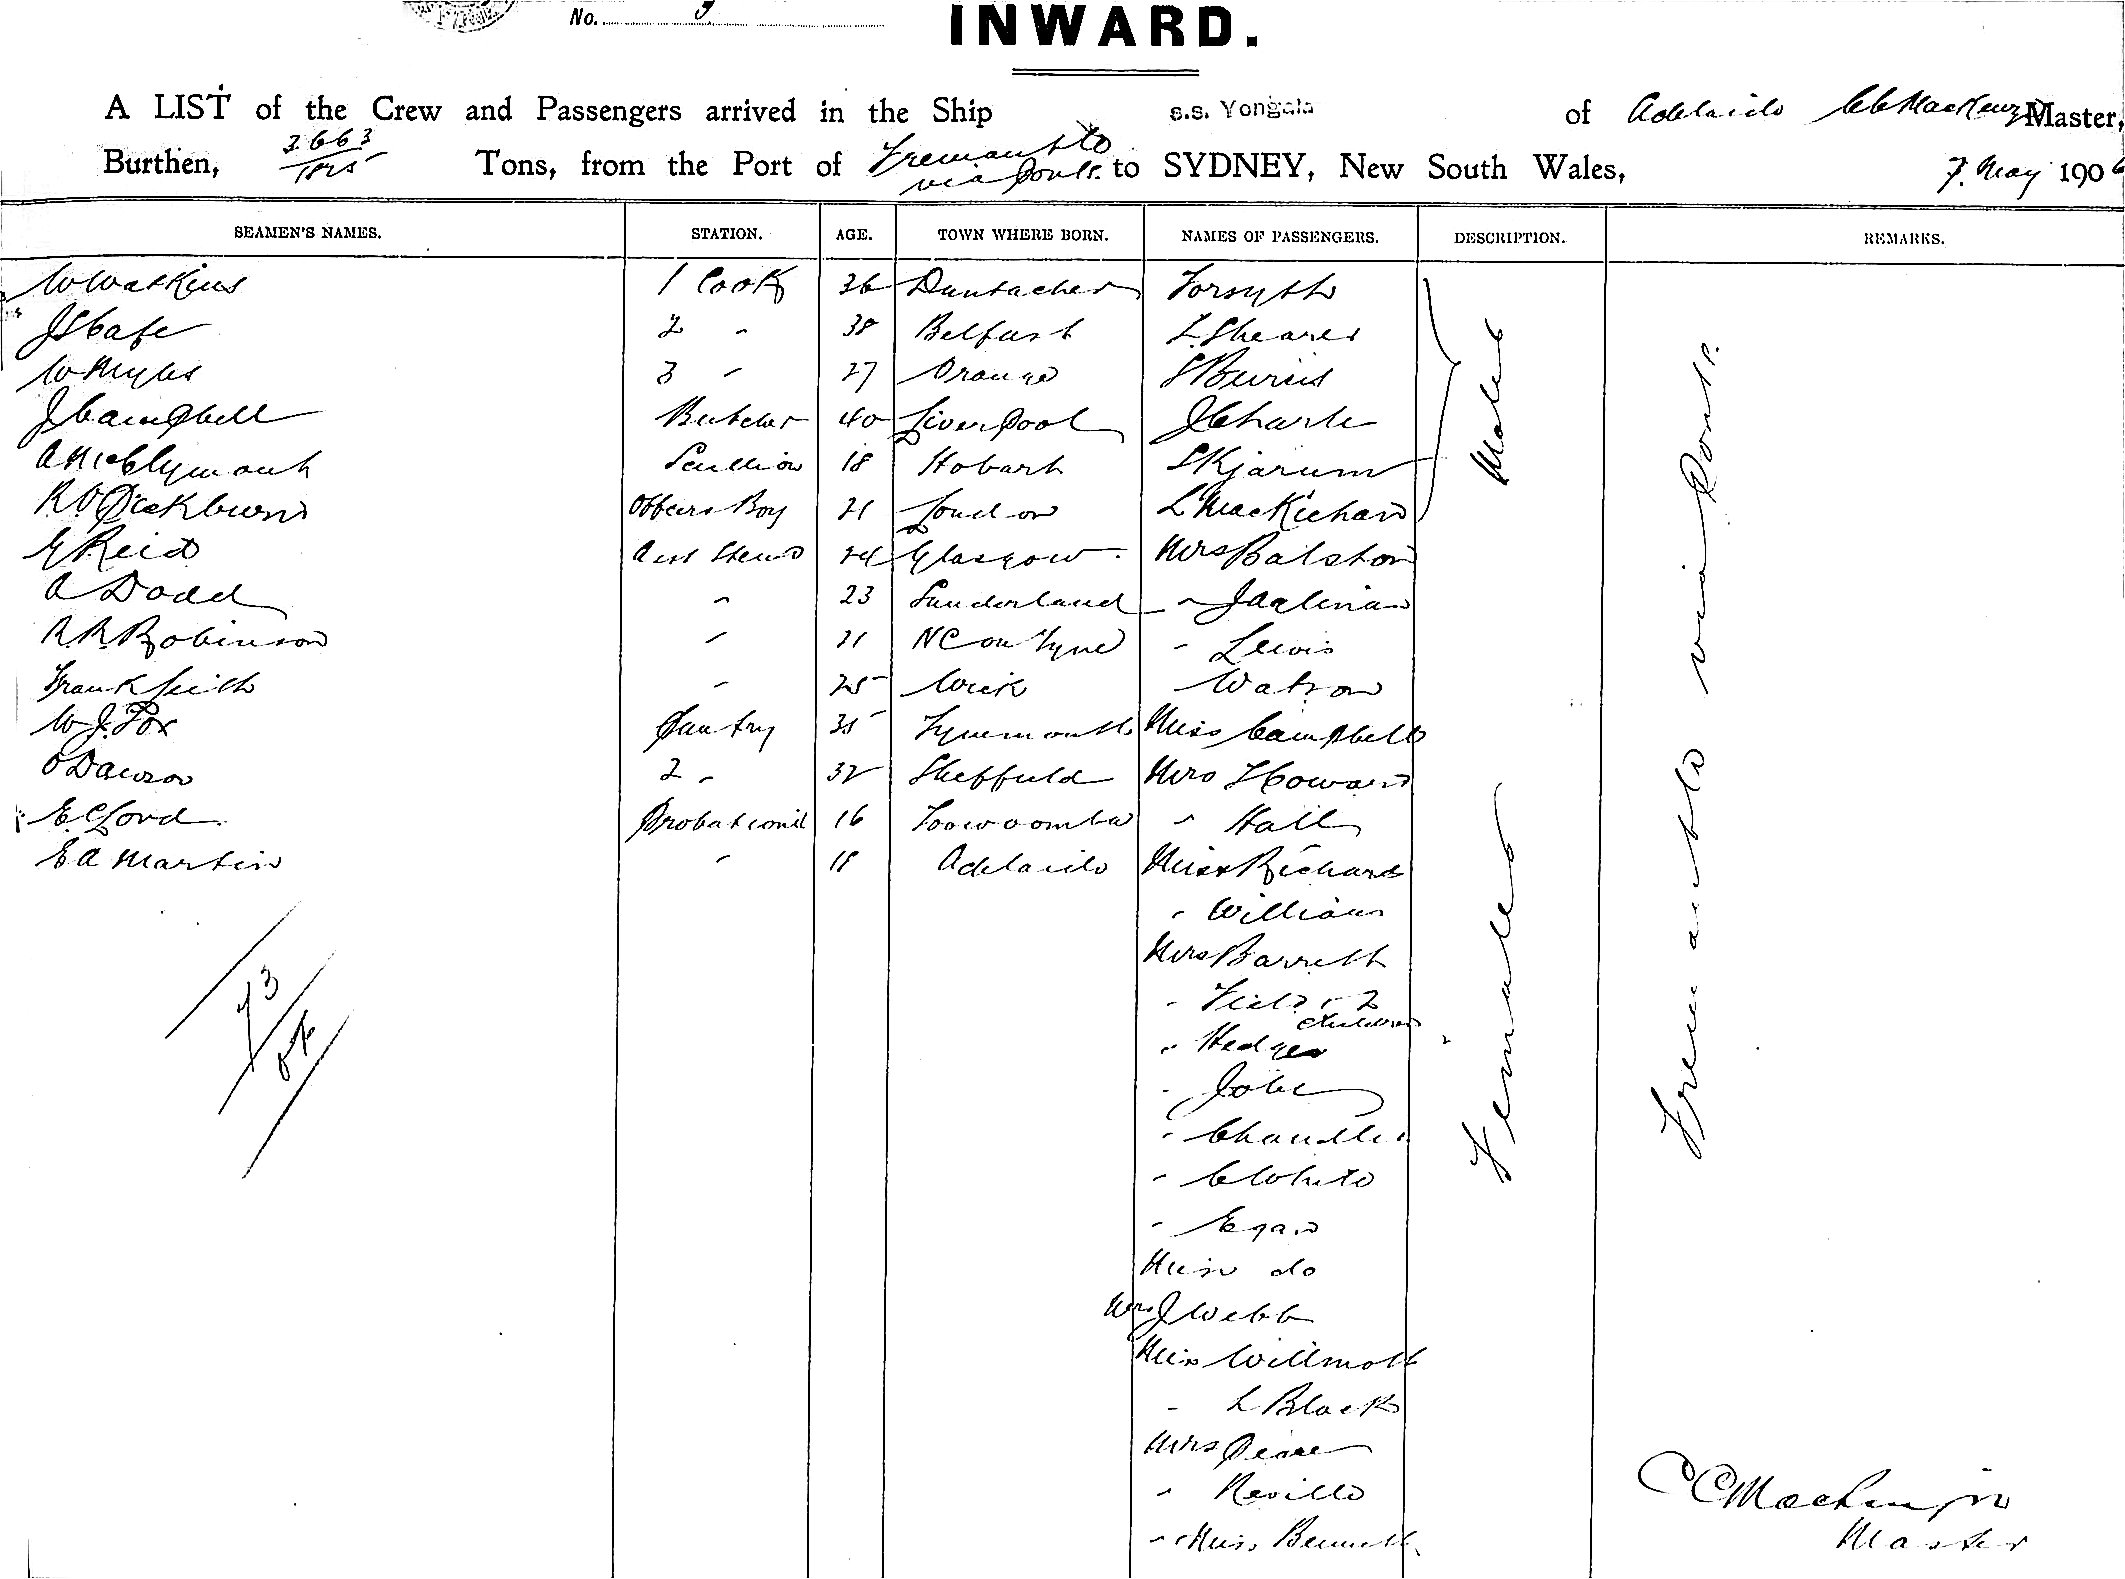 No. 3
INWARD.
A LIST of the Crew and Passengers arrived in the Ship s.s. Yongala of Adelaide CC Mackenzie Master,
Burthen, 3663 Tons, from the Port of Fremantle via Ports to SYDNEY, New South Wales, 7. May 1906
SEAMEN'S NAMES. STATION. AGE. TOWN WHERE BORN. NAMES OF PASSENGERS. DESCRIPTION. REMARKS.
W Watkins 1 Cook 36 Duntocher Forsyth
2 " 38 Belfast L Shearer
W Myles 3 " 27 Orange S Burns
J Campbell Butcher 40 Liverpool J Charle
A McClymont Scullion 18 Hobart S Kjarum
R O Pickburn Officers Boy 21 London L MacKichan
G Reid Asst Stewd 24 Glasgow Mrs Balston
A Dodd " 23 Sunderland "
R. R. Robinson " 21 NC on Tyne " Lewis
Frank Keith " 25 Wick Watson
W J. Fox Pantry 35 Tynemouth Miss Campbell
O Dawson 2 " 32 Sheffield Mrs Howard
E. C Lord Probationer 16 Toowoomba " Hall
E A Martin " 18 Adelaide Miss Richard
" William
Mrs Barrett
" Field & 2
children
" Hedges
" Jobe
" Chandler
" C White
" Egan
Miss do
Mrs J Webb
Miss Willmott
" L Black
Mrs Pearce
" Neville
" Miss Bennett
Males
Females
Fremantle via Ports.
73
CC Mackenzie
Master